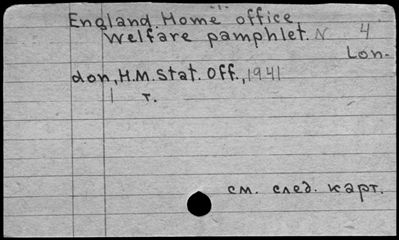 England. Home office.
Welfare pamphlet. N 4
Lon-
don, H.M. Stat. Off., 1941
1 т.
см. след. карт.